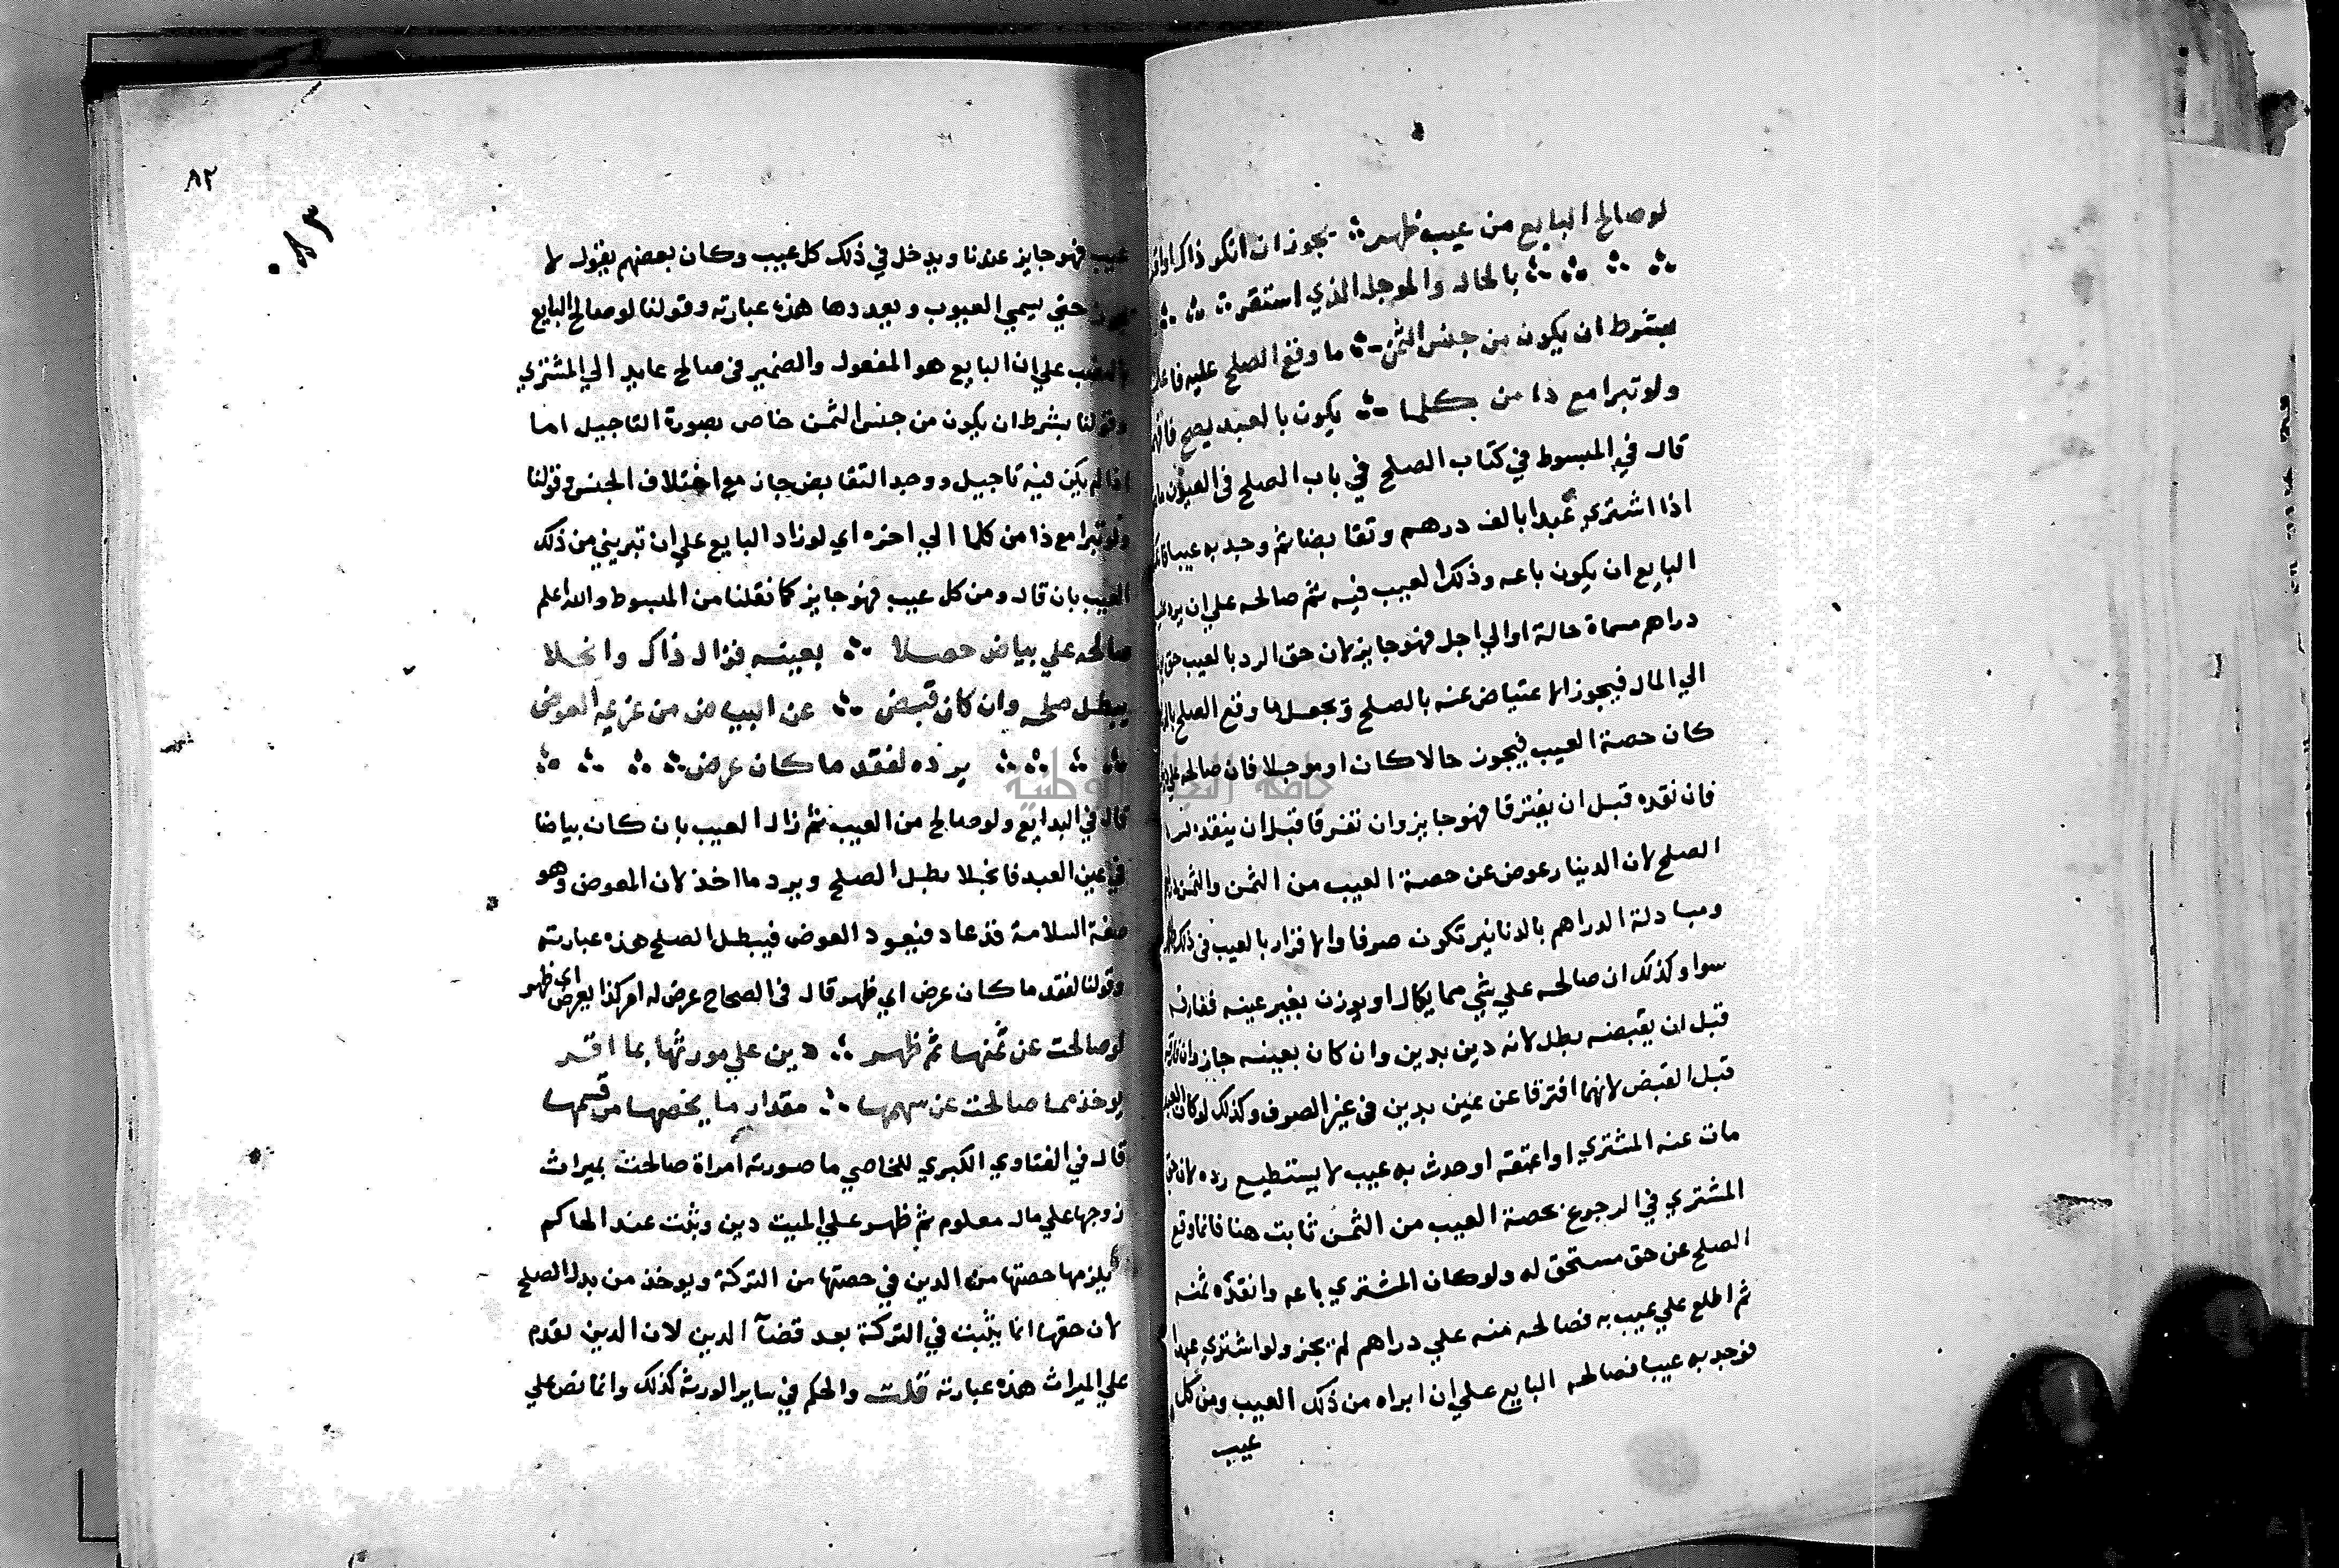 لو صالح البايع من عيب ظهر ∴ يجوز ان انكر ذاك او اقر
∴ ∴ ∴ ∴ بالحال والموجل الذي استقر ∴ ∴ ∴
بشرط ان يكون من جنس الثمن ∴ ما وقع الصلح عليه فاعلمن
ولو تبرا مع ذا من كلما ∴ يكون بالعبد يصح فافهما
قال في المبسوط في كتاب الصلح في باب الصلح في العيوب
اذا اشتري عبدا بالف درهم وتقابضا ثم وجد به عيبا فانكر
البايع ان يكون باعه وذلك العيب فيه ثم صالحه علي ان يرد عليه
دراهم مسماة حالة او الي اجل فهو جايز لان حق الرد بالعيب حق
الي المال فيجوز الاعتياض عنه بالصلح ويجعل ما وقع الصلح
كان حصة العيب فيجوز حالا كان او موجلا فان صالحه علي
فان نقده قبل ان يفترقا فهو جايز وان تفرقا قبل ان ينقده
الصلح لان الدينار عوض عن حصة العيب من الثمن والثمن
ومبادلة الدراهم بالدنانير تكون صرفا والاقرار بالعيب في ذلك
سوا وكذلك ان صالحه علي شي مما يكال او يوزن بغير عينه ففارقه
قبل ان يقبضه بطل لانه دين بدين وان كان بعينه جاز وان فارقه
قبل القبض لانهما افترقا عن عين بدين في غير الصرف وكذلك لو كان العبد
مات عند المشتري او اعتقه او حدث به عيب لا يستطيع رده لان حق
المشتري في الرجوع بحصة العيب من الثمن ثابت هنا فانما وقع
الصلح عن حق مستحق له ولو كان المشتري باعه وانقده ثمنه
ثم اطلع علي عيب به فصالحه منه علي دراهم لم يجز ولو اشتري عبدا
فوجد به عيبا فصالحه البايع علي ان ابراه من ذلك العيب ومن كل
عيب
٨٢
٠٨٣
عيب فهو جايز عندنا ويدخل في ذلك كل عيب وكان بعضهم يقول لا
يجوز حتي يسمي العيوب ويعددها هذه عبارته وقولنا لو صالح البايع
بالنصب علي ان البايع هو المفعول والضمير في صالح عايد الي المشتري
وقولنا بشرط ان يكون من جنس الثمن خاص بصورة التاجيل اما
اذا لم يكن فيه تاجيل ووجد التقابض جاز مع اختلاف الجنس وقولنا
ولو تبرا مع ذا من كلما الي اخره اي لو زاد البايع علي ان تبريني من ذلك
العيب بان قال ومن كل عيب فهو جايز كما نقلنا من المبسوط والله اعلم
صالحه علي بياض حصلا ∴ بعينه فزال ذاك وانجلا
يبطل صلحه وان كان قبض ∴ عن البياض من غريمه العوض
∴ ∴ ∴ ∴ يرده لفقد ما كان عرض ∴ ∴ ∴ ∴
قال في البدايع ولو صالح من العيب ثم زال العيب بان كان بياضا
في عين العبد فانجلا بطل الصلح ويرد ما اخذ لان المعوض وهو
صفة السلامة قد عاد فيعود العوض فيبطل الصلح هذه عبارته
وقولنا لفقد ما كان عرض اي ظهر قال في الصحاح عرض له امر كذا يعرض اي ظهر
لو صالحت عن ثمنها ثم ظهر ∴ دين علي مورثها بما اقر
يوخذ مما صالحت عن سهمها ∴ مقدار ما يخصها من قسمها
قال في الفتاوي الكبري للخاصي ما صورته امراة صالحت بميراث
زوجها علي مال معلوم ثم ظهر علي الميت دين وثبت عند الحاكم
يلزمها حصتها من الدين في حصتها من التركة ويوخذ من بدل الصلح
لان حقها انما يثبت في التركة بعد قضآ الدين لان الدين مقدم
علي الميراث هذه عبارته قلت والحكم في ساير الورثة كذلك وانما نص علي